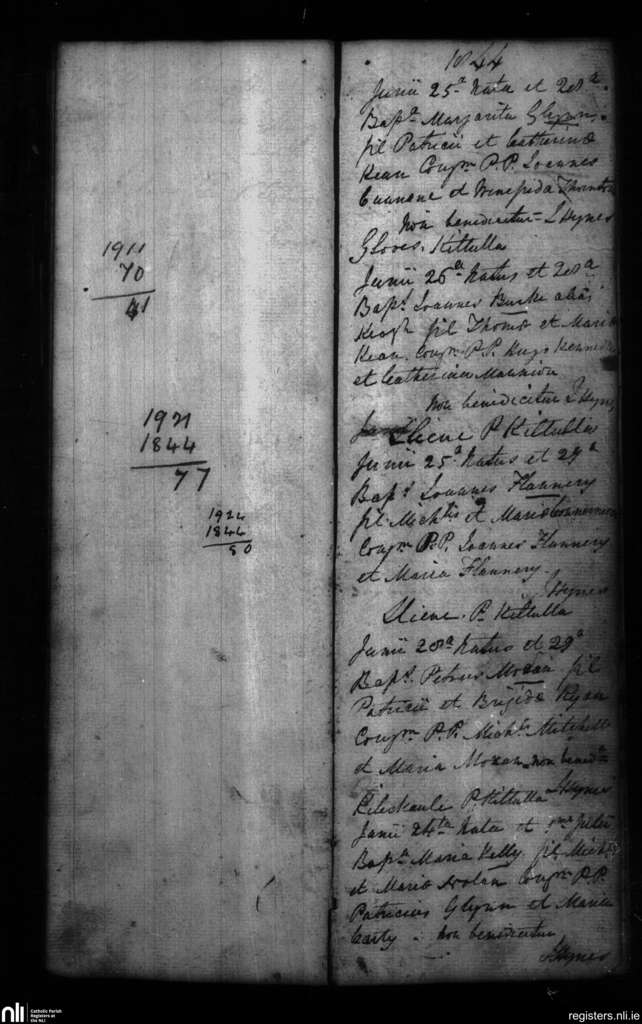 1911
70
41
1921
1844
77
1924
1844
80
1844
Junii 25ª Nata et 28ª
Bapª Margarita Glynn
fil Patricii et Catherinæ
Kean Conjm P.P. Joannes
et Winefrida Thornton
Non benedicitur J Hynes
Gloves. Kiltulla
Junii 26ª Natus et 28ª
Baps Joannes Burke alias
Keogh fil Thomæ et Mariæ
Kean. Conjm P.P. Hugo Kennedy
et Catherina Mannion
Non benedicitur J Hynes
P Kiltulla
Junii 25ª Natus et 29ª
Baps Joannes Flannery
fil Michlis et Mariæ
Conjm P.P. Joannes Flannery
et Maria Flannery.
J Hynes
P. Kiltulla
Junii 28ª Natus et 29ª
Baps Petrus Moran fil
Patricii et Brigidæ Ryan
Conjm P.P. Michls Mitchell
et Maria Moran non benedtr
P. Kiltulla J Hynes
Junii 24ta Nata et
Bapª Maria Kelly fil Michls
et Mariæ Nolan Conjm P.P.
Patricius Glynn et Maria
Carty. non benedicitur
J Hynes
nli
Catholic Parish
Registers at
the NLI
registers.nli.ie